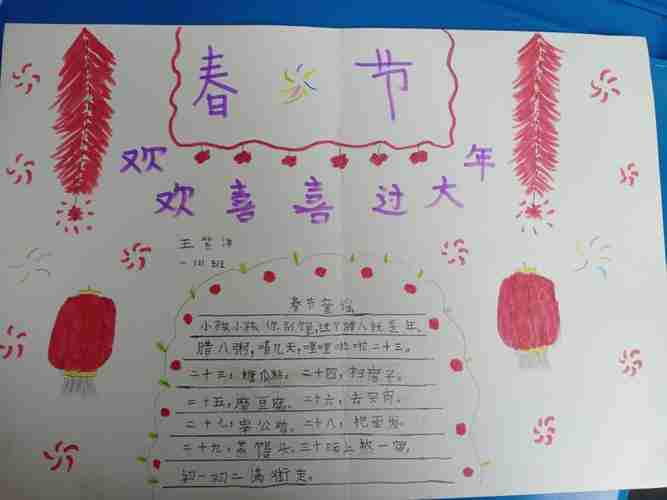 春节
欢欢喜喜过大年
王
一(1)班
春节童谣
小孩小孩你别馋,过了腊八就是年。
腊八粥,喝几天,哩哩啦啦二十三。
二十三,糖瓜粘。二十四,扫房子。
二十五,磨豆腐。二十六,去买肉。
二十七,宰公鸡。二十八,把面发。
二十九,蒸馒头。三十晚上熬一宿,
初一初二满街走。